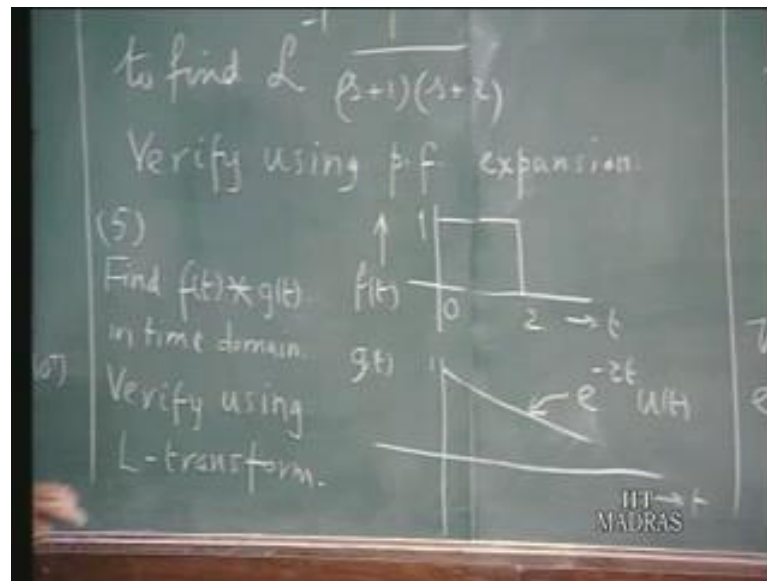 to find ℒ⁻¹ 1/(s+1)(s+2)
Verify using p.f. expansion.
(5)
Find f(t)*g(t).
in time domain.
Verify using
L-transform.
1
f(t)
0 2 → t
g(t) 1
e^-2t u(t)
→ t
IIT
MADRAS